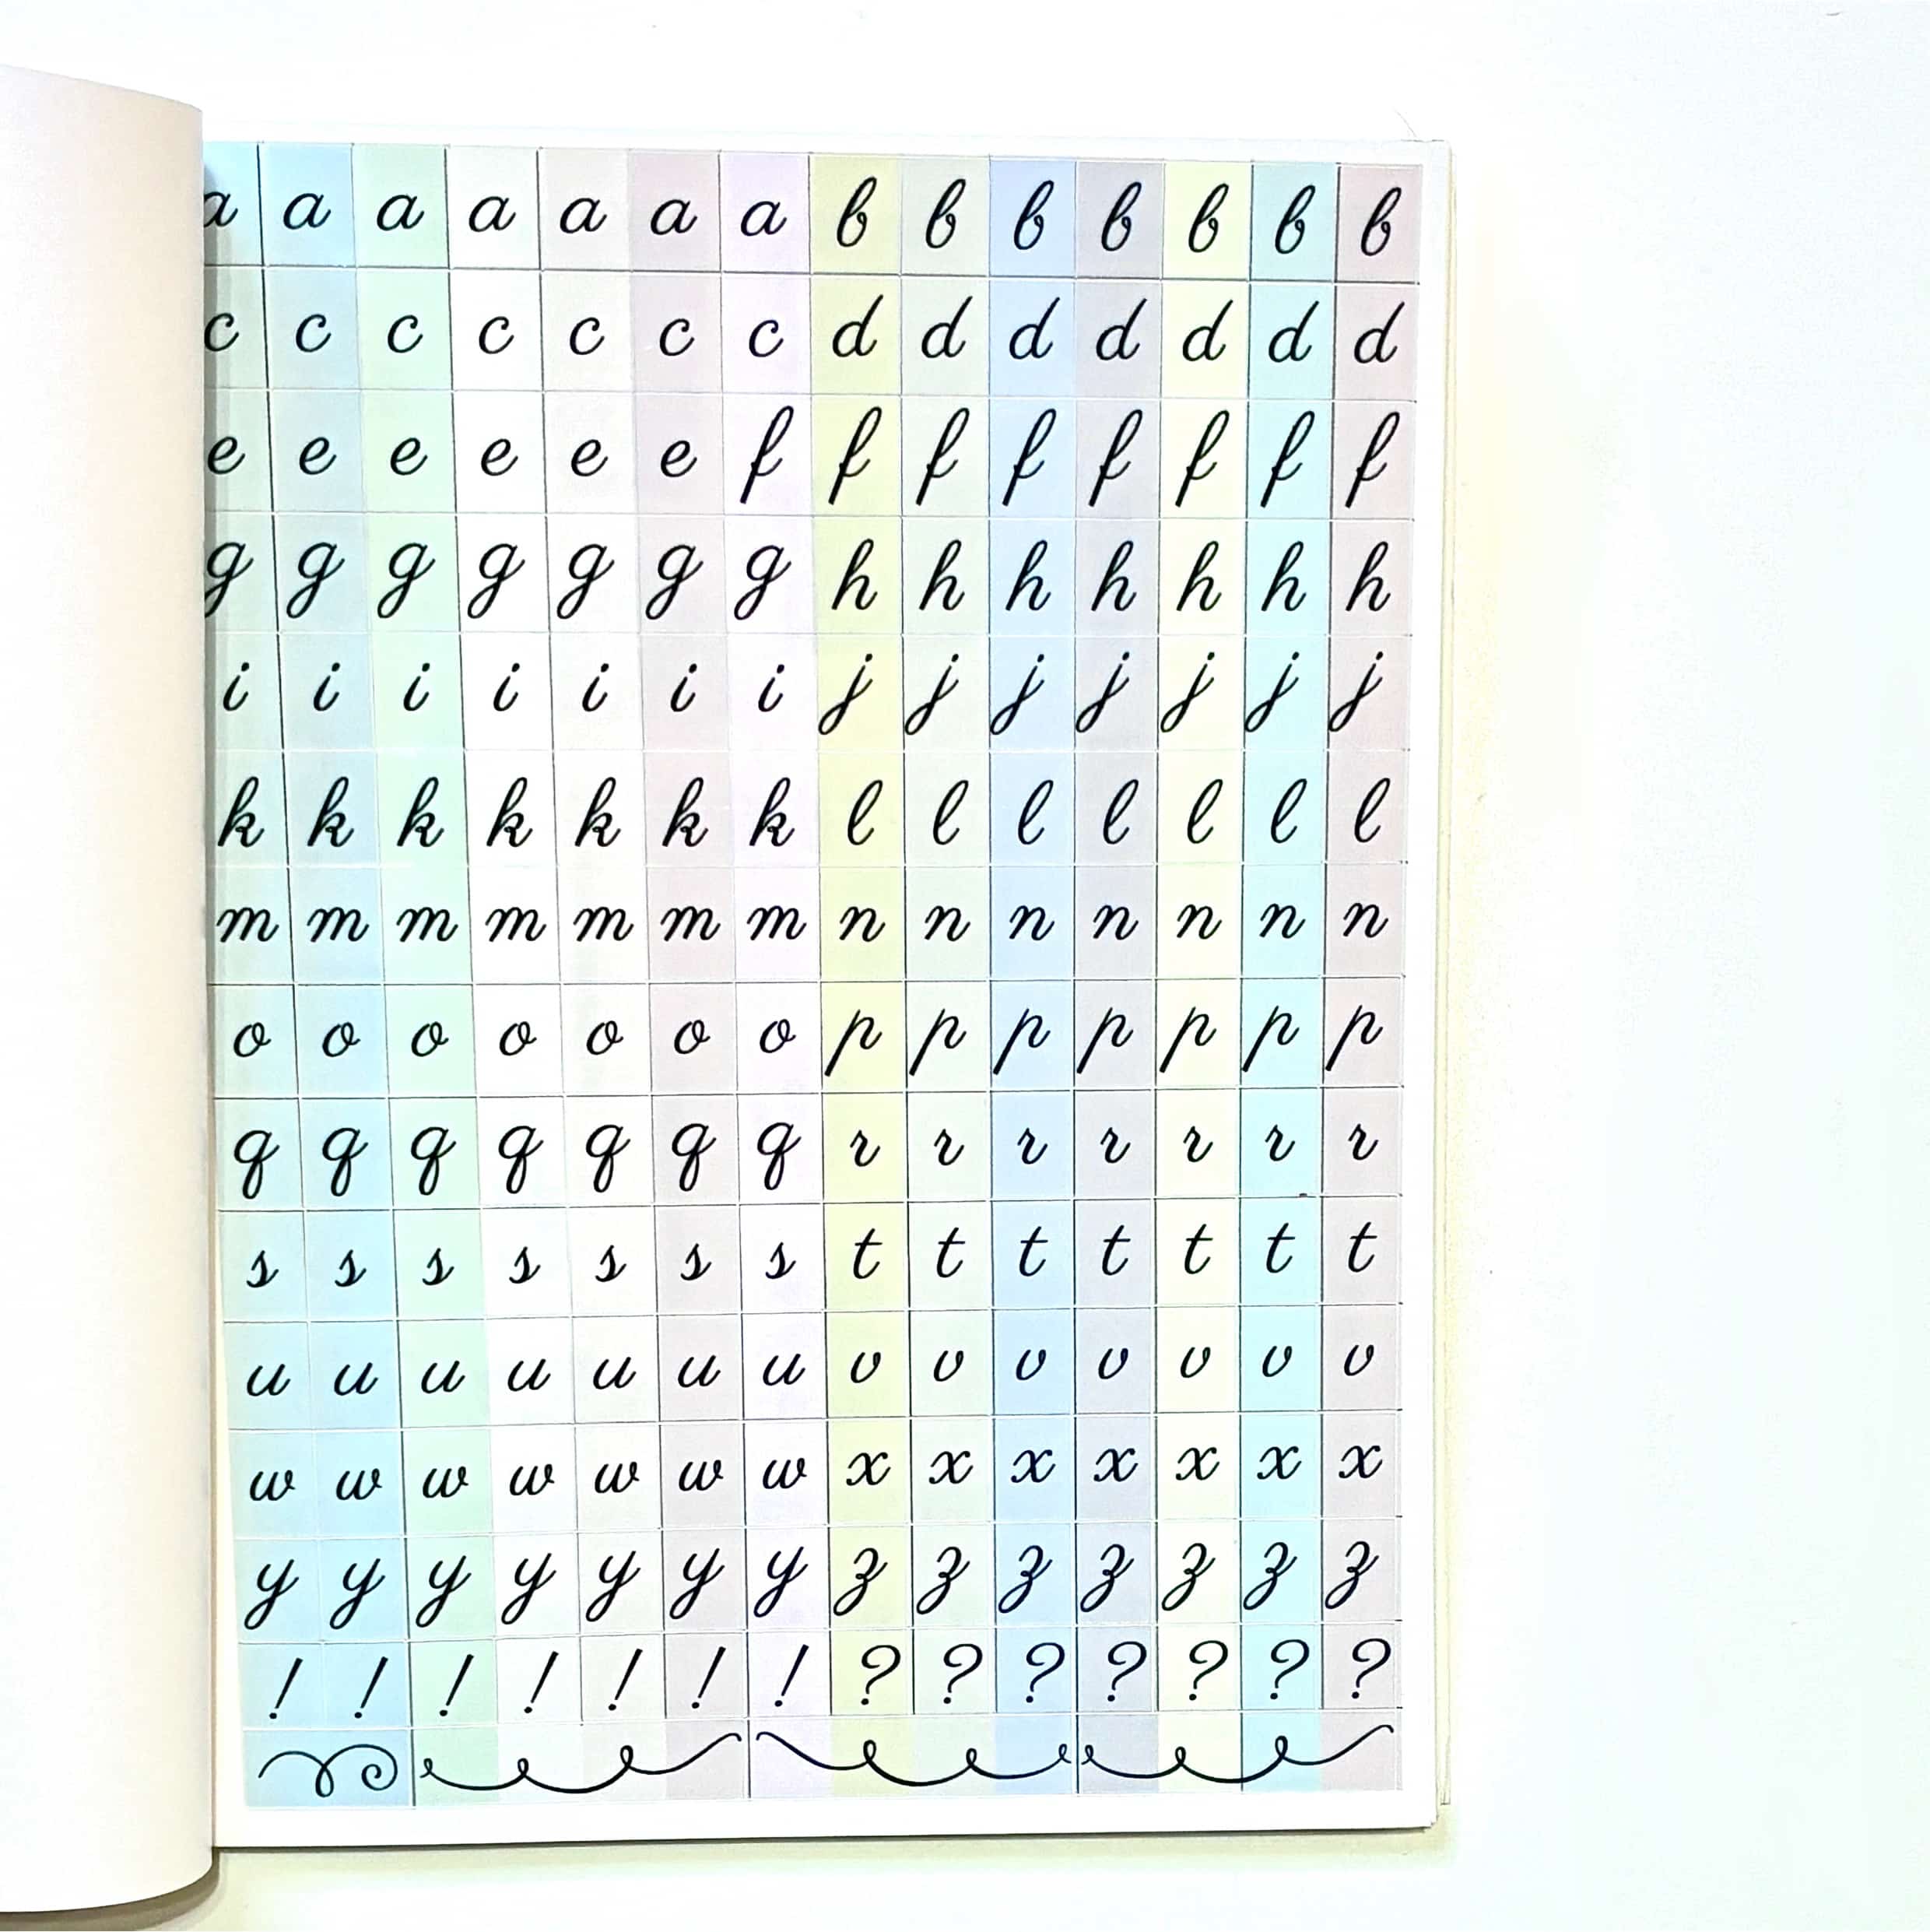 a a a a a a a b b b b b b b
c c c c c c c d d d d d d d
e e e e e e f f f f f f f f
g g g g g g g h h h h h h h
i i i i i i i j j j j j j j
k k k k k k k l l l l l l l
m m m m m m m n n n n n n n
o o o o o o o p p p p p p p
q q q q q q q r r r r r r r
s s s s s s s t t t t t t t
u u u u u u u v v v v v v v
w w w w w w w x x x x x x x
y y y y y y y z z z z z z z
! ! ! ! ! ! ! ? ? ? ? ? ? ?